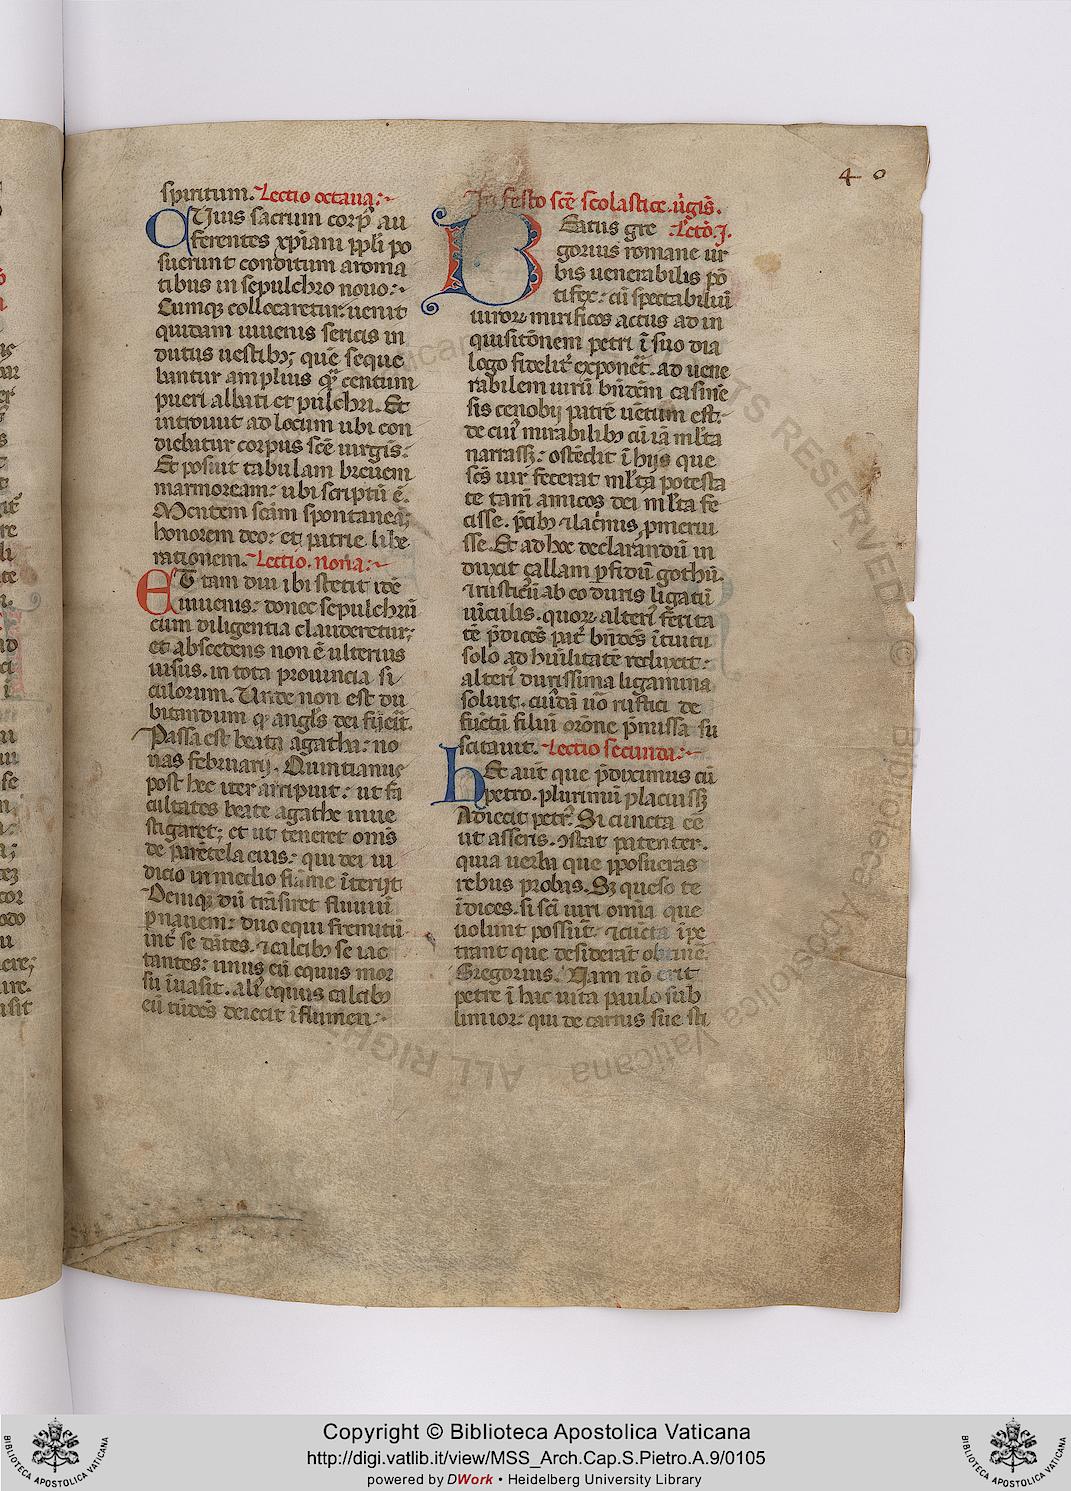 40
spiritum. Lectio octaua.
Cuius sacrum corpꝰ au
ferentes xp̄iani pp̄li po
suerunt conditum aroma
tibus in sepulchro nouo.
Cumqꝫ collocaretur: uenit
quidam iuuenis sericis in
dutus uestibꝫ; quē seque
bantur amplius qᷓ centum
pueri albati et pulchri. Et
introiuit ad locum ubi con
diebatur corpus scē uirgis̄.
Et posuit tabulam breuem
marmoream: ubi scriptū ē.
Mentem sc̄am spontaneā;
honorem deo: et patrie libe
rationem. Lectio. nona.
Et tam diu ibi stetit idē
iuuenis: donec sepulchrū
cum diligentia clauderetur;
et abscedens non ē ulterius
uisus. in tota prouincia si
culorum. Unde non est du
bitandum qͥ angl̄s dei fuerit.
Passa est beata agatha: no
nas februarij. Quintianus
post hec iter arripuit: ut fa
cultates beate agathe inue
stigaret; et ut teneret om̄s
de parētela eius: qui dei iu
dicio in medio flumīe īterijt
Deniqꝫ dū trāsiret fluuiū
p nauem: duo equi fremitū
int̄ se dātes. ⁊ calcibꝫ se iac
tantes: unus eū equus mor
su īuasit. aliꝰ equus calcibꝫ
eū tūdēs deiecit ī flumen.
In festo scē scolastice. ūgis̄.
Beatus gre Lectō. j.
gorius romane ur
bis uenerabilis pō
tifex: cū spectabiliū
uiroꝝ mirificos actus ad in
quisitōnem petri ī suo dia
logo fidelit̄ exponēt. ad uene
rabilem uirū bn̄dēm casinē
sis cenobij patrē uētum est.
de cuiꝰ mirabilibꝫ cū iā ml̄ta
narrassꝫ: ostēdit ī hijs que
scs̄ uir fecerat ml̄ta potesta
te tam̄ amicos dei ml̄ta fe
cisse. p̄cibꝫ ⁊ lac̄mis pmerui
sse. Et ad hoc declarandū in
duxit çallam pfidū gothū.
⁊ rusticū ab eo duris ligatū
uīculis. quoꝝ alteriꝰ ferita
tē p̄dicēs pat̄ bn̄dc̄s ītuitu
solo ad hūilitatē reduxit:
alteriꝰ durissima ligamina
soluit. cuiꝰdā ūo rustici de
fūctū filiū or̄one p̄missa su
scitauit. Lectio secunda:
hEt aut̄ que p̄diximus cū
petro. plurimū placuissꝫ
Adiecit petrꝰ. Si cuncta cē
ut asseris. ꝯstat patenter.
quia uerba que pposueras
rebus probas. Sꝫ queso te
īdices. si scī uiri omīa que
uolunt possūt. ⁊ cūcta īpe
trant que desiderāt obtinē.
Gregorius. Nam nō erit
petre ī hac uita paulo sub
limior: qui de carnis sue sti
ALL RIGHTS RESERVED © Biblioteca Apostolica Vaticana
BIBLIOTECA APOSTOLICA VATICANA
Copyright © Biblioteca Apostolica Vaticana
http://digi.vatlib.it/view/MSS_Arch.Cap.S.Pietro.A.9/0105
powered by DWork • Heidelberg University Library
BIBLIOTECA APOSTOLICA VATICANA